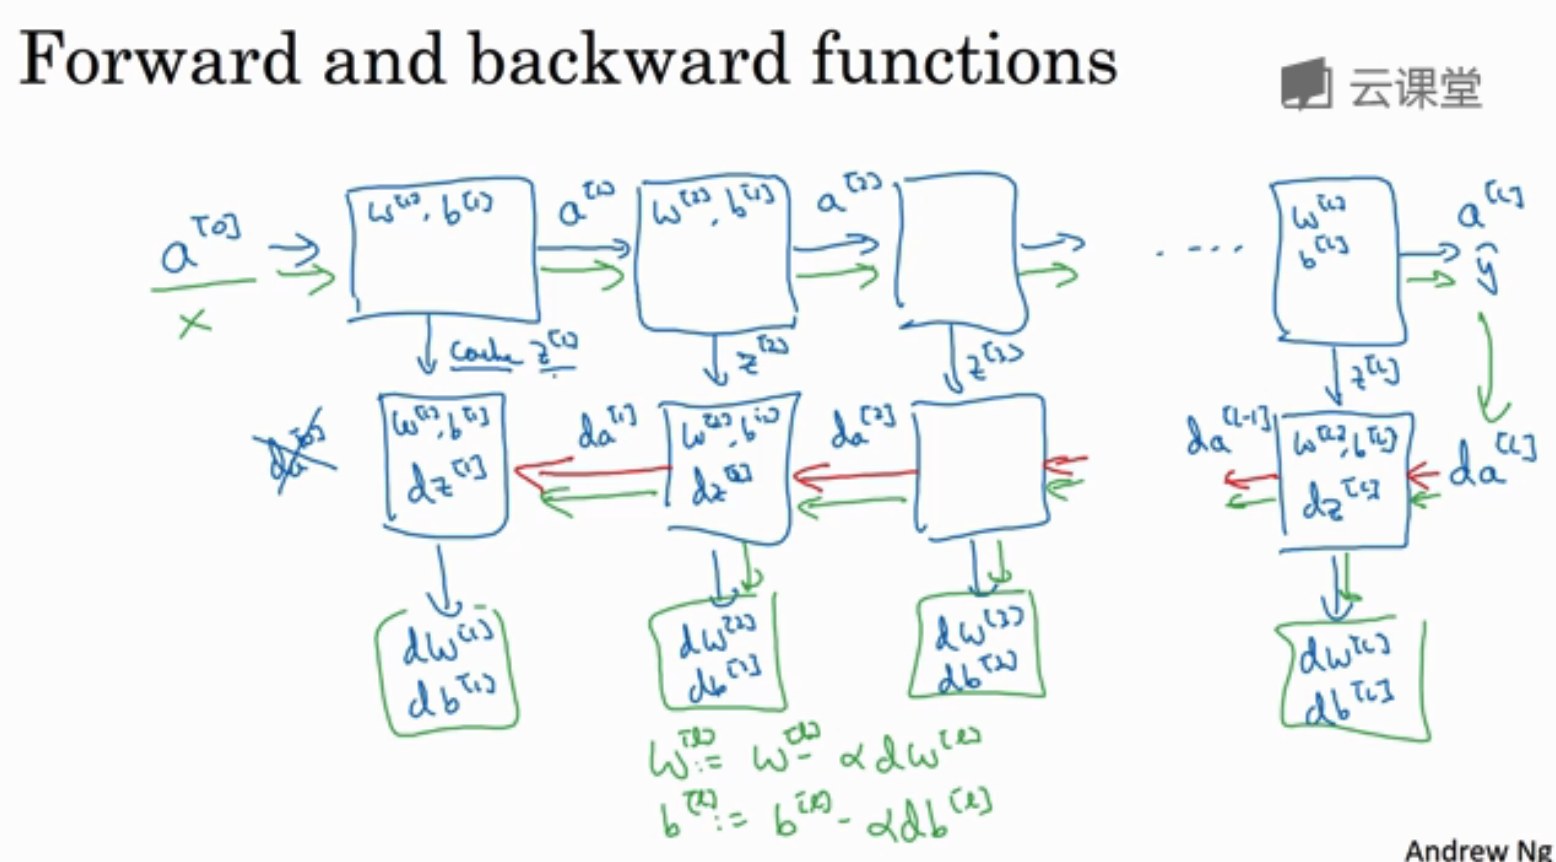 Forward and backward functions
云课堂
a^[0] w^[1], b^[1] a^[1] w^[2], b^[2] a^[2] .... w^[L] a^[L]
b^[L] ŷ
x
cache z^[1] z^[2] z^[3] z^[L]
da^[0] w^[1], b^[1] da^[1] w^[2], b^[2] da^[2] da^[L-1] w^[L], b^[L] da^[L]
dz^[1] dz^[2] dz^[L]
dw^[1] dw^[2] dw^[3] dw^[L]
db^[1] db^[2] db^[3] db^[L]
w^[l] := w^[l] - αdw^[l]
b^[l] := b^[l] - αdb^[l]
Andrew Ng